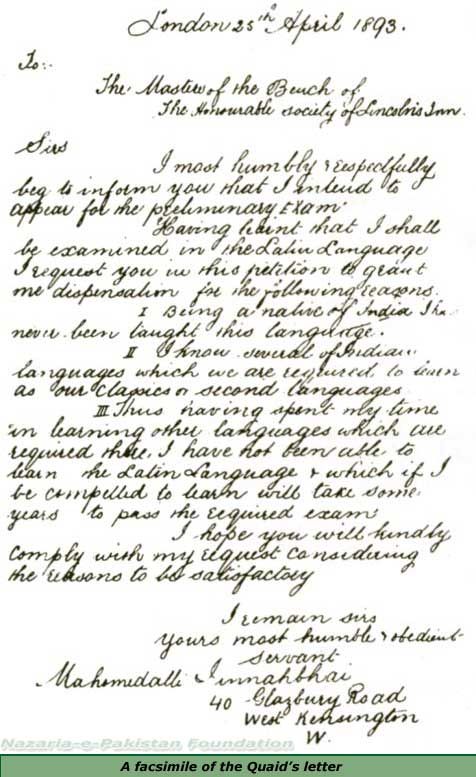 London 25th April 1893.
To:-
The Masters of the Bench of
The Honourable society of Lincoln's Inn.
Sirs
I most humbly & respectfully
beg to inform you that I intend to
appear for the preliminary Exam
Having learnt that I shall
be examined in the Latin Language
I request you in this petition to grant
me dispensation for the following reasons.
I Being a native of India I ha
never been taught this language.
II I know several of Indian
languages which we are required to learn
as our classics or second languages
III Thus having spent my time
in learning other languages which are
required there, I have not been able to
learn the Latin Language & which if I
be compelled to learn will take some
years to pass the required exam
I hope you will kindly
comply with my request considering
the reasons to be satisfactory
I remain sirs
yours most humble & obedient
servant
Mahomedalli Jinnahbhai
40 Glazbury Road
West Kensington
W.
Nazaria-e-Pakistan Foundation
A facsimile of the Quaid's letter